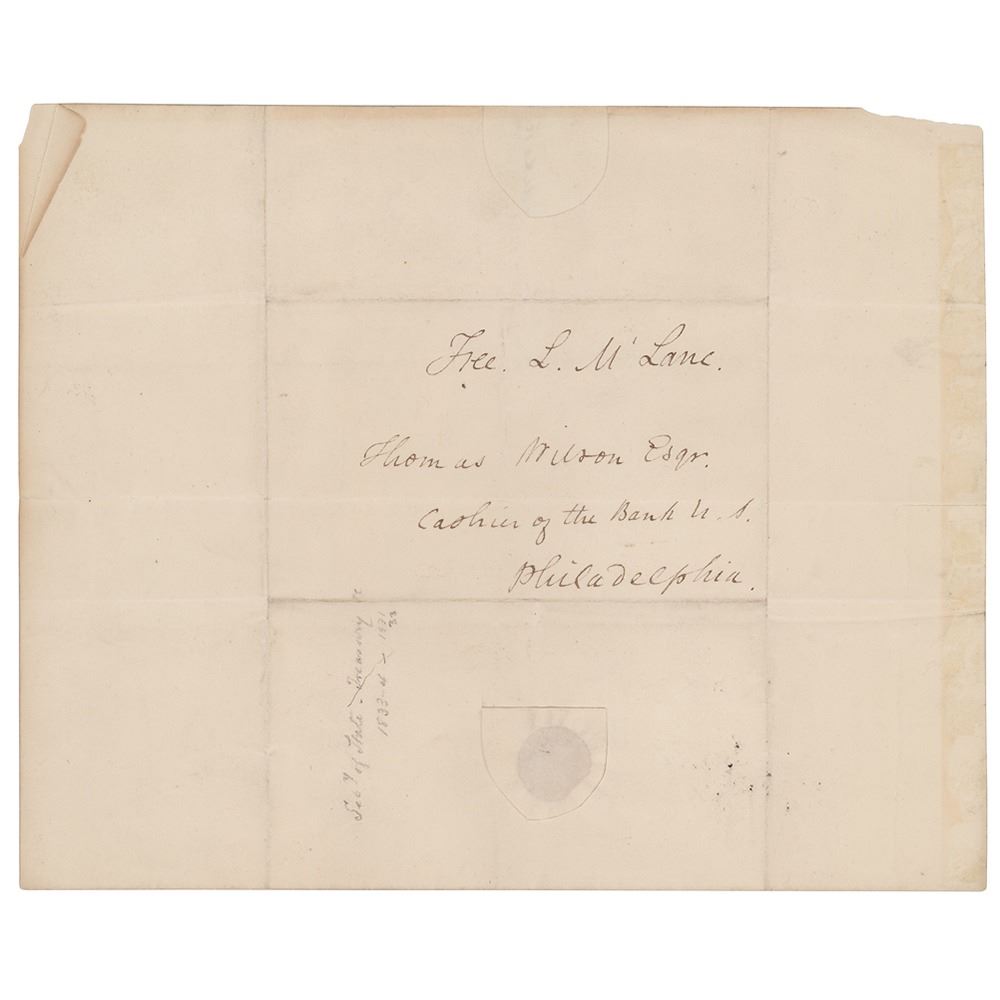 Free. L. M'Lane.
Thomas Wilson Esqr.
Cashier of the Bank U. S.
Philadelphia.
Secy of State - Treasury &c
1833-4 1831
32